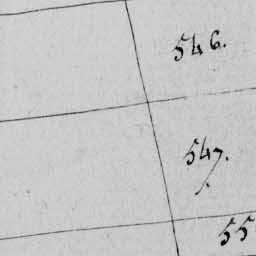 546.
547.
55